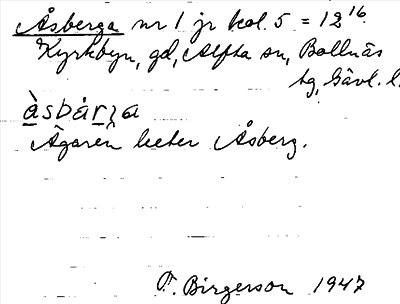 Åsberga nr 1 jr kol. 5 = 12¹⁶.
Kyrkbyn, gd, Alfta sn, Bollnäs
tg, Gävl. l.
àsbárʒa
Ägaren heter Åsberg.
F. Birgerson 1947